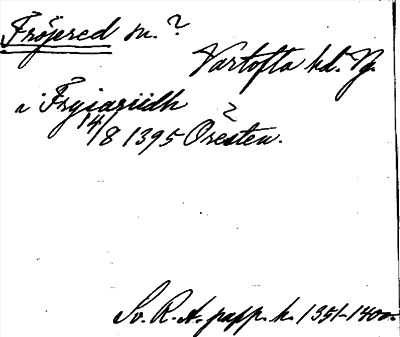 Fröjered sn. ?
Vartofta hd. Vg.
i Fryiariidh
14/8 1395 Öresten. ?
Sv. R. A. papp. h. 1351-1400.